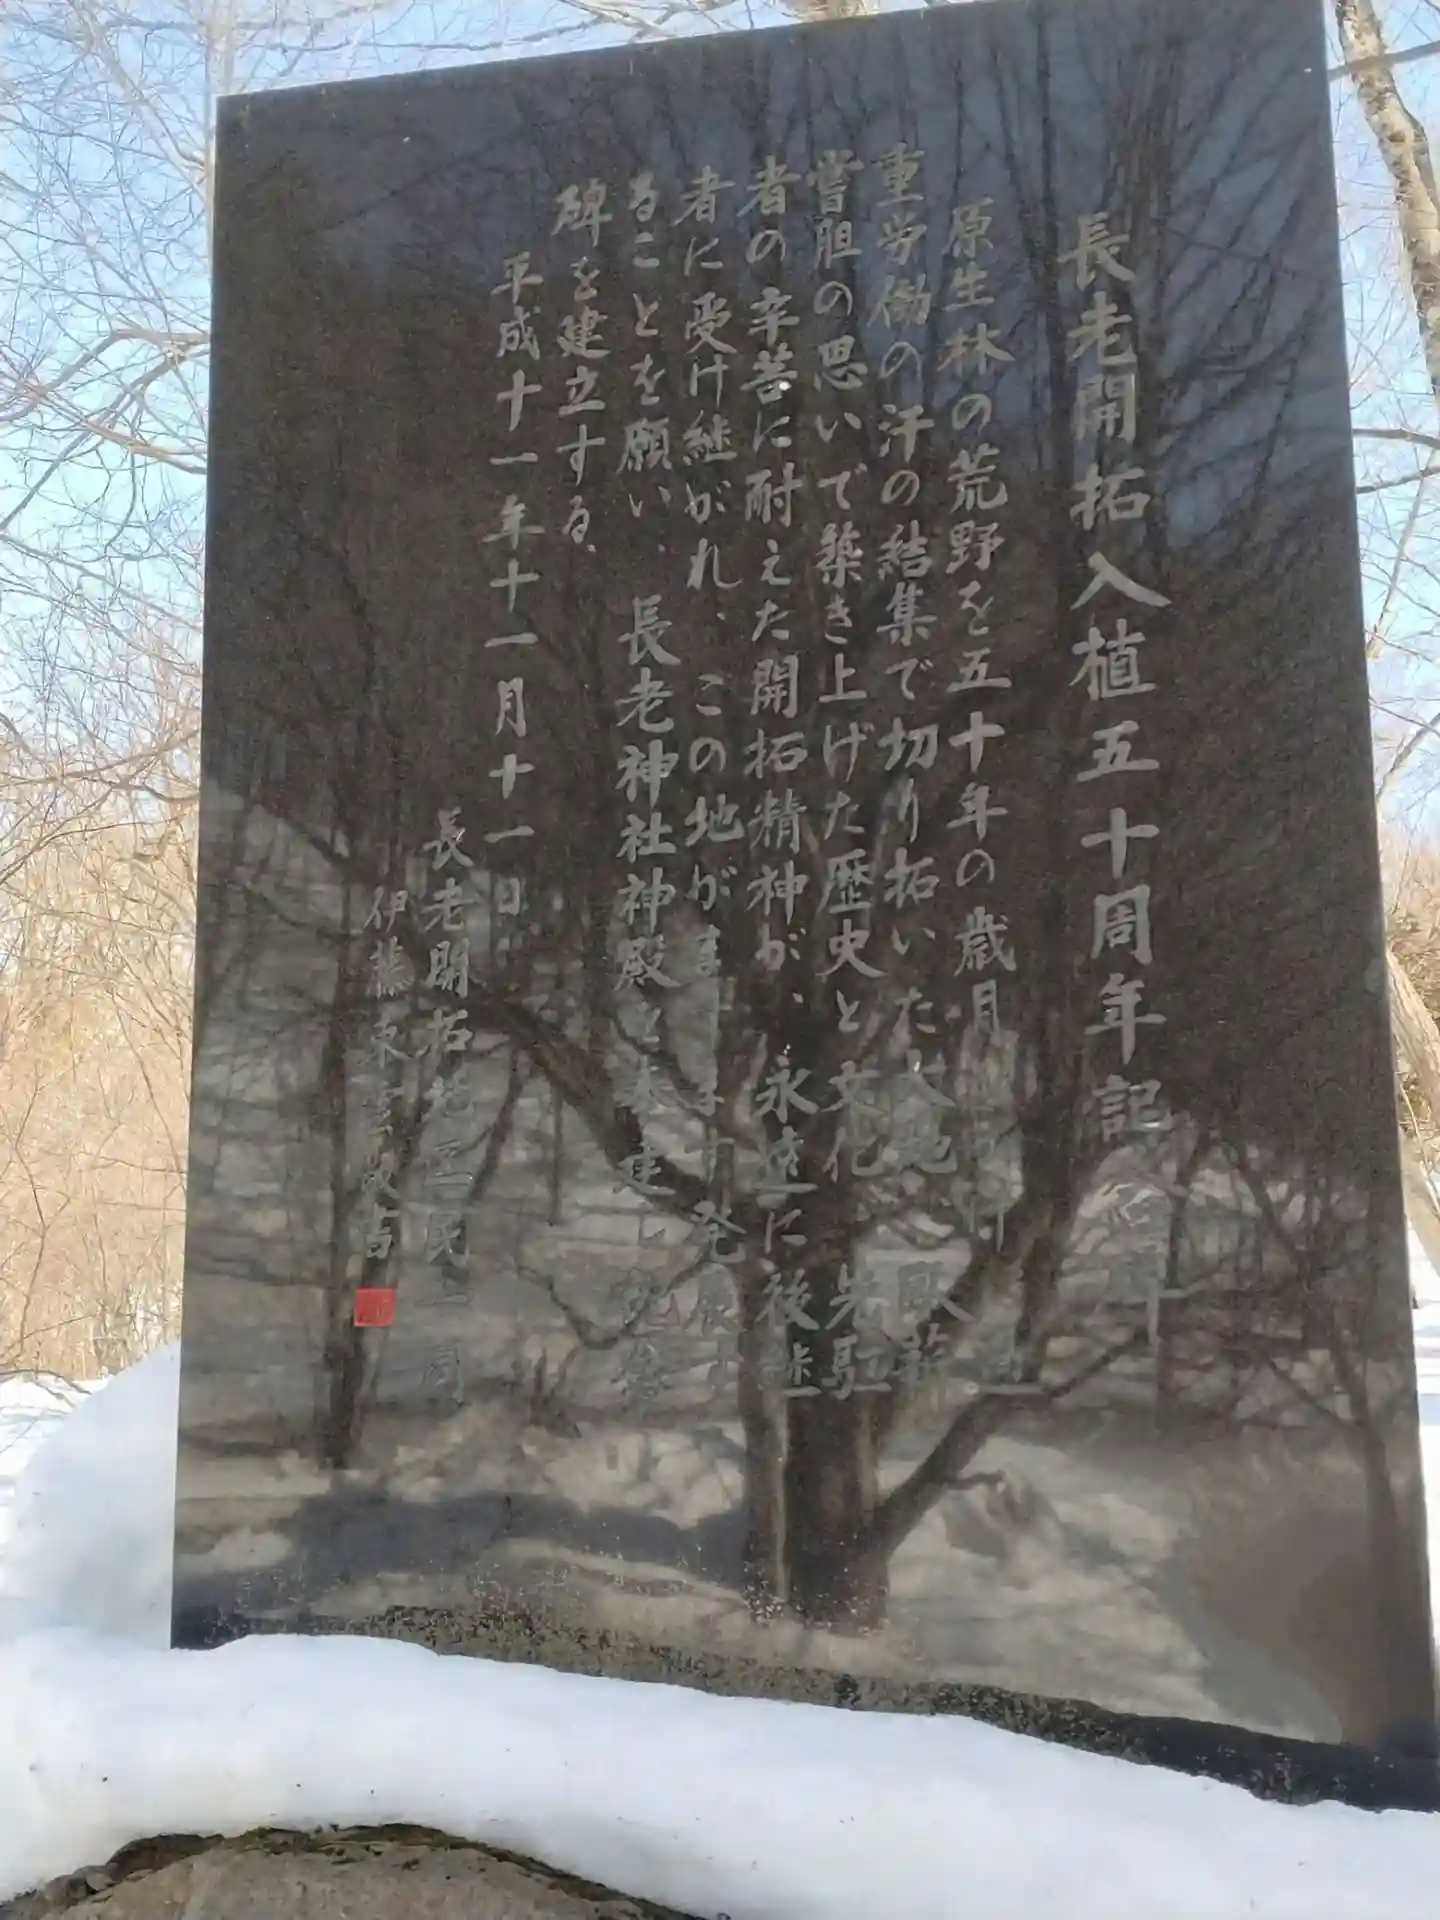 長老開拓入植五十周年記念碑
原生林の荒野を五十年の歳月
重労働の汗の結集で切り拓いた大地 臥薪
嘗胆の思いで築き上げた歴史と文化 先駆
者の辛苦に耐えた開拓精神が、永遠に後継
者に受け継がれ、この地がますます発展す
ることを願い、長老神社神殿と 建し記念
碑を建立する、
平成十一年十一月十一日
長老開拓 一同
伊藤